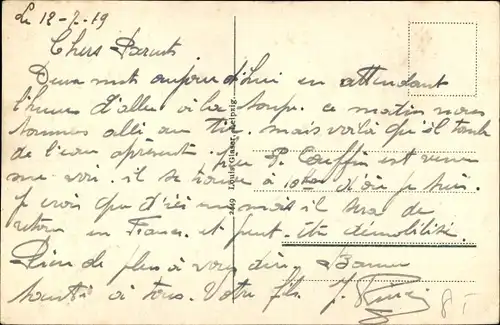 Le 12-7-19
Chers Parents
Deux mots aujourd'hui en attendant
l'heure d'aller à la soupe. ce matin nous
sommes allé au tir. mais voilà qu'il tombe
de l'eau apresent. P. Couffin est venu
me voir. il se trouve à d'où je suis.
Je crois que d'ici un mois il sera de
retour en France. et peut être démobilisé
Rien de plus à vous dire. Bonne
santé à tous. Votre fils. J.
2449 Louis Glaser, Leipzig.